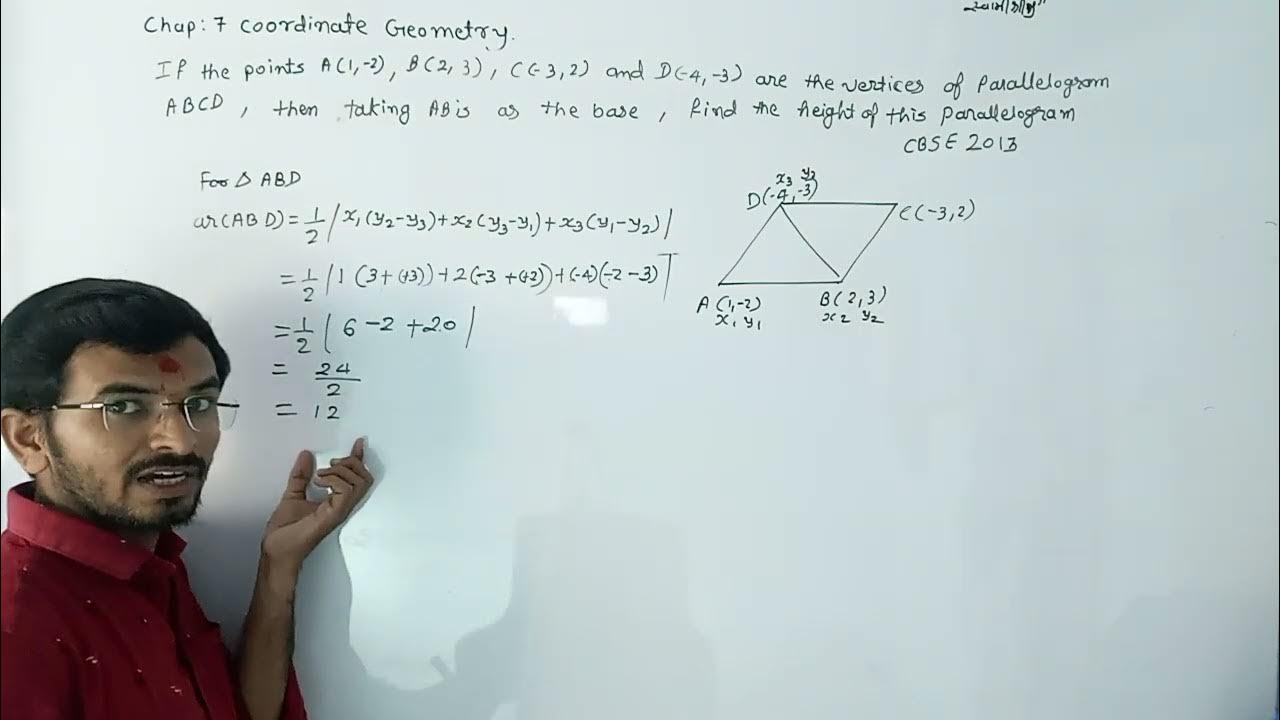 स्वामीश्रीજી
Chap: 7 Coordinate Geometry.
If the points A(1,-2), B(2, 3), C(-3, 2) and D(-4, -3) are the vertices of Parallelogram
ABCD, then taking AB is as the base, find the height of this Parallelogram
CBSE 2013
For Δ ABD
ar(ABD) = 1/2 |x₁(y₂-y₃)+x₂(y₃-y₁)+x₃(y₁-y₂)|
= 1/2 |1 (3+(+3))+2(-3+(+2))+(-4)(-2-3)|
= 1/2 | 6 -2 +20 |
= 24/2
= 12
x₃ y₃
D(-4,-3)
C(-3,2)
A (1,-2)
x₁ y₁
B(2,3)
x₂ y₂